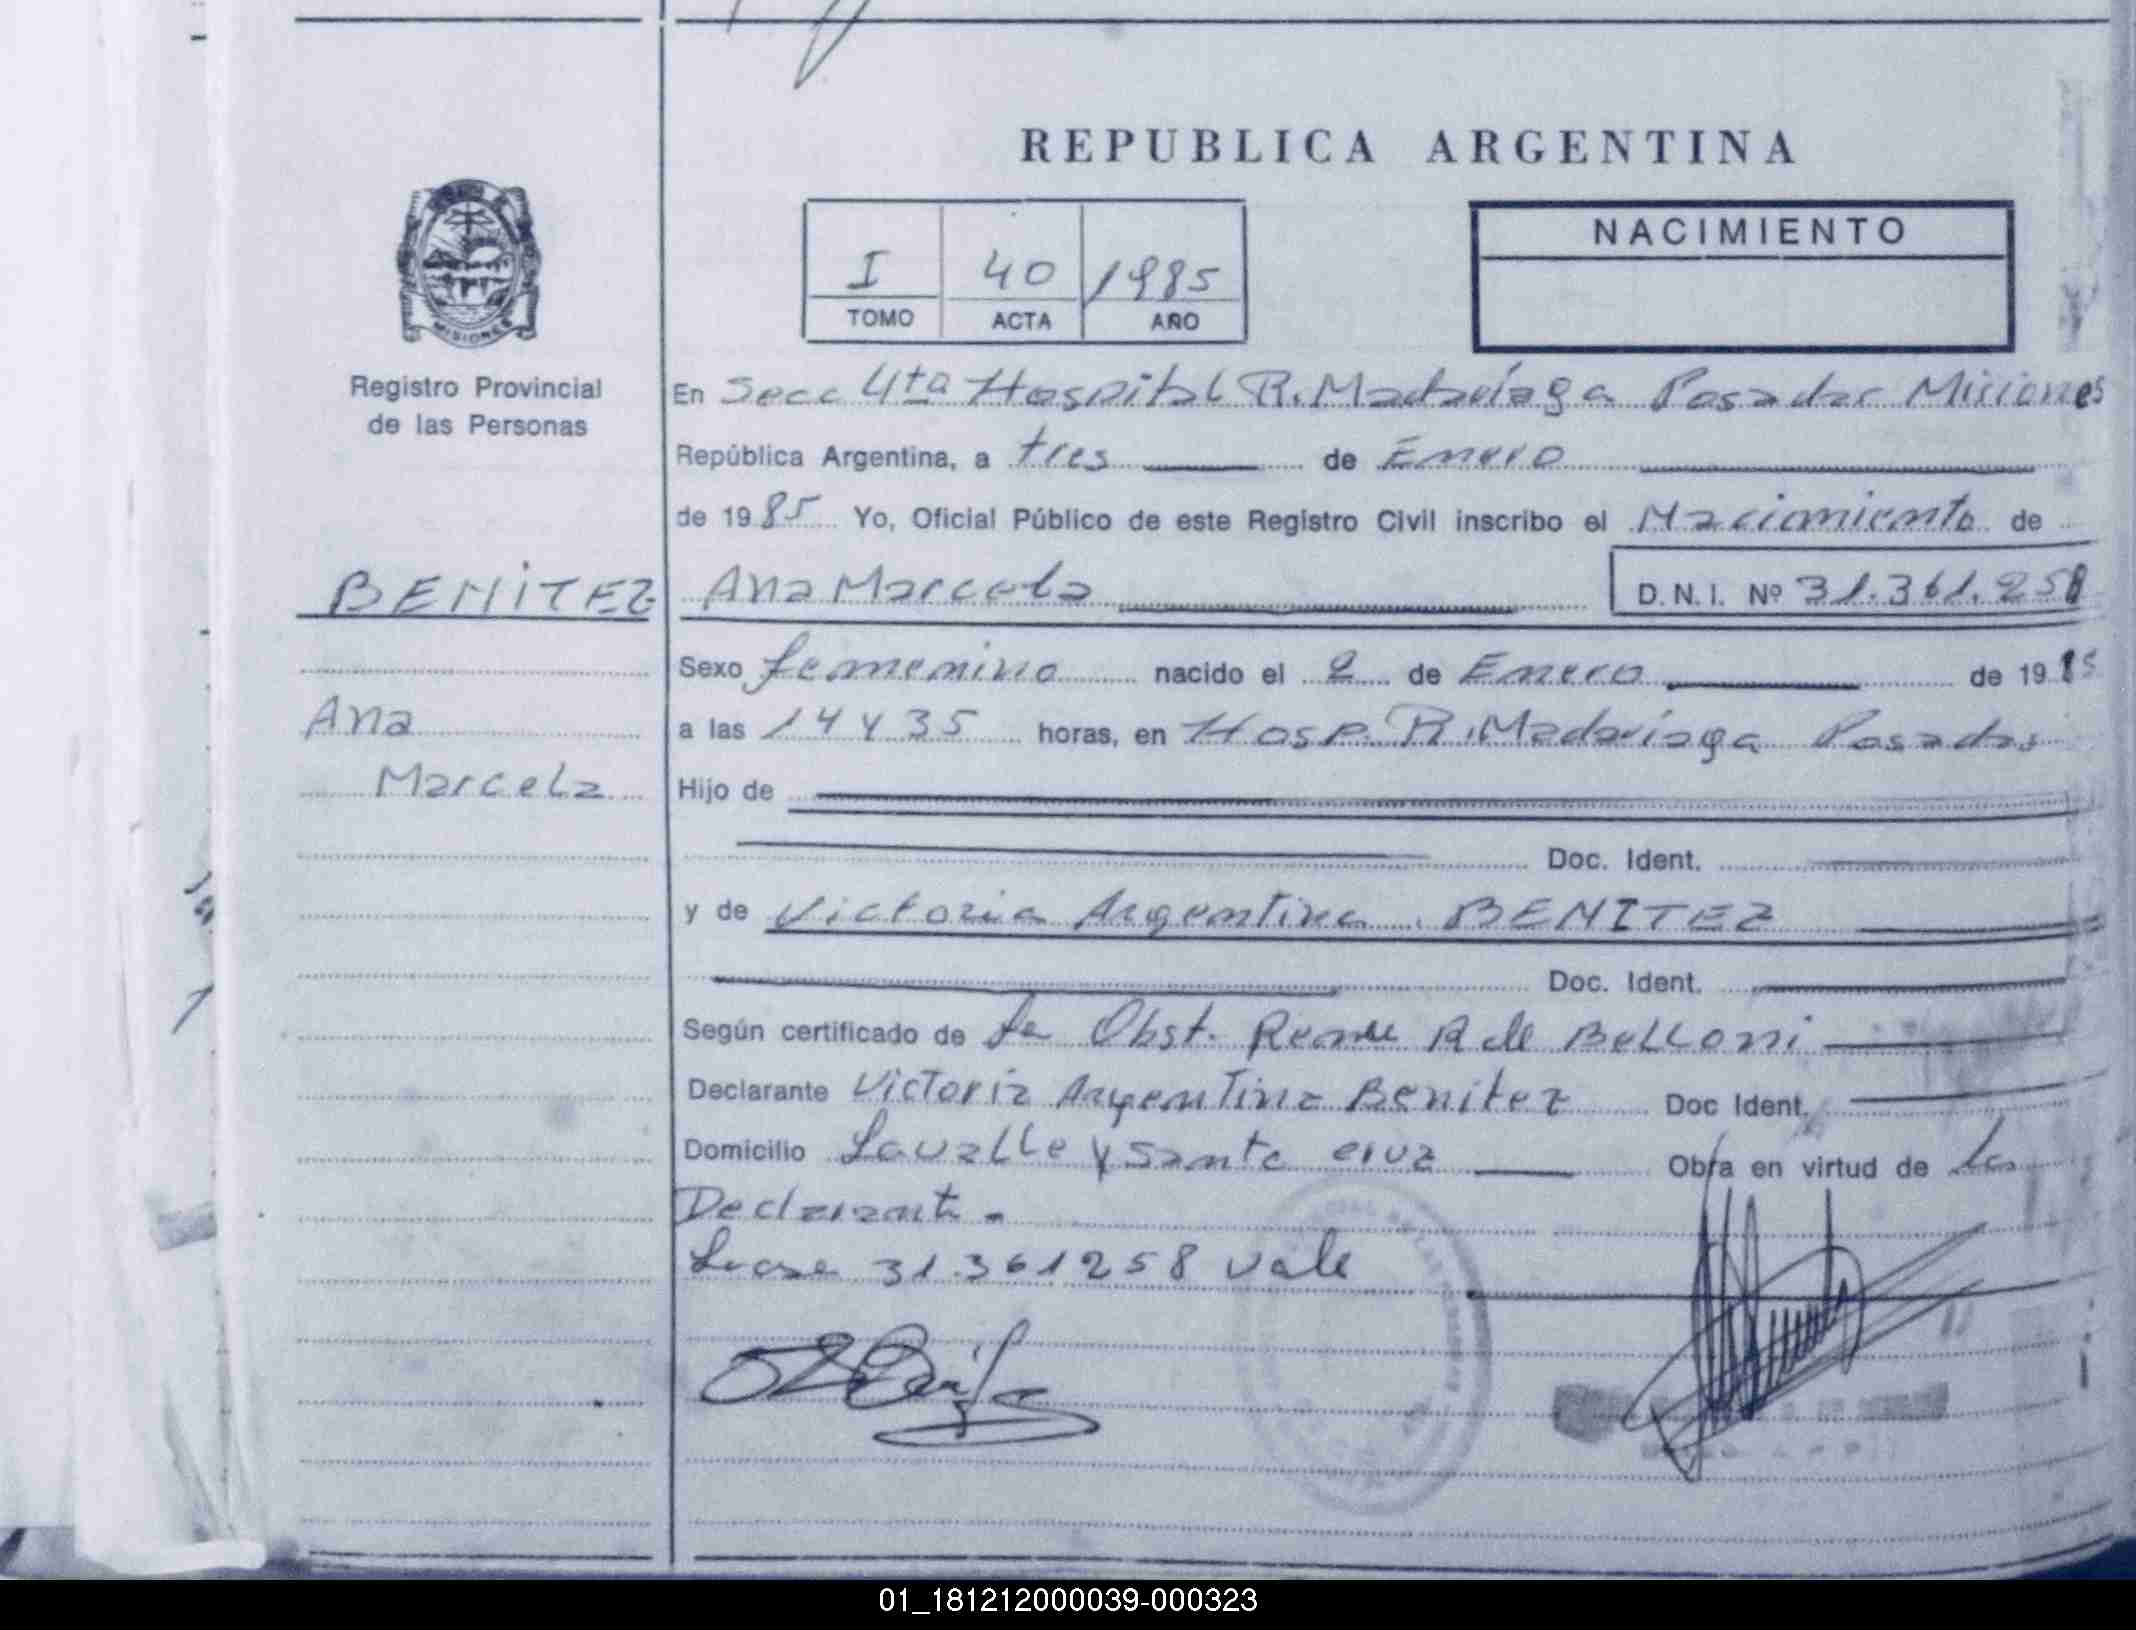 REPUBLICA ARGENTINA
MISIONES
Registro Provincial
de las Personas
I 40 1985
TOMO ACTA AÑO
NACIMIENTO
En Secc 4ta Hospital R. Madariaga Posadas Misiones
República Argentina, a tres de Enero
de 1985 Yo, Oficial Público de este Registro Civil inscribo el Nacimiento de
BENITEZ Ana Marcela D.N.I. Nº 31.361.258
Sexo femenino nacido el 2 de Enero de 1985
Ana
a las 14 y 35 horas, en Hosp. R. Madariaga Posadas
Marcela
Hijo de
Doc. Ident.
y de Victoria Argentina BENITEZ
Doc. Ident.
Según certificado de la Obst. R de Belloni
Declarante Victoria Argentina Benitez Doc Ident.
Domicilio Lavalle y Santa cruz Obra en virtud de la
Declarante.
31.361258 vale
01_181212000039-000323